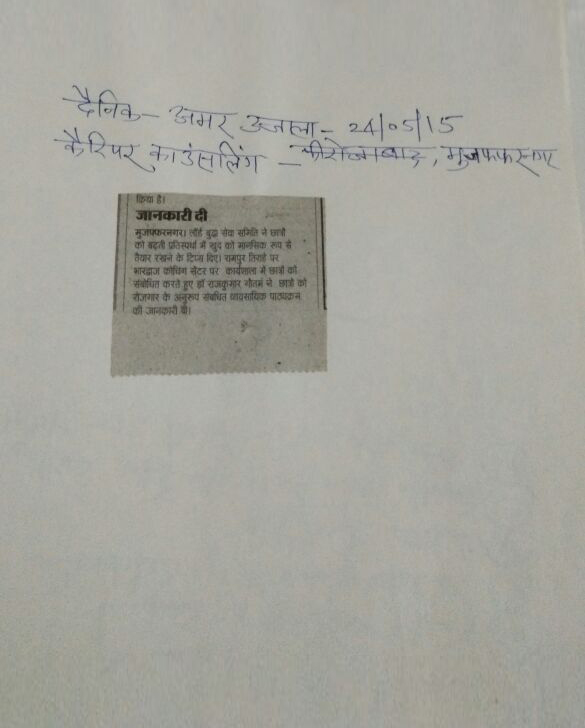 दैनिक- अमर उजाला- 24/05/15
कैरियर काउंसलिंग - , मुजफ्फरनगर
किया है।
जानकारी दी
मुजफ्फरनगर। लॉर्ड बुद्ध सेवा समिति ने छात्रों
को बढ़ती प्रतिस्पर्धा में खुद को मानसिक रूप से
तैयार रखने के टिप्स दिए। रामपुर तिराहे पर
भारद्वाज कोचिंग सेंटर पर कार्यशाला में छात्रों को
संबोधित करते हुए डॉ राजकुमार गौतम ने छात्रों को
रोजगार के अनुरूप संबंधित व्यावसायिक पाठ्यक्रम
की जानकारी दी।